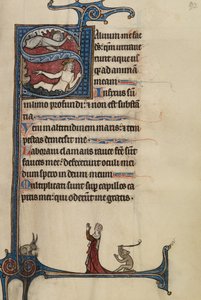 Saluum me fac
ds qm intraue
runt aque us
q; ad animam
meam
Infixus sū
in limo profundi: ⁊ non est substan
tia.
Veni in altitudinem maris: ⁊ tem
pestas demersit me.
Laboraui clamans rauce fce sūt
fauces mee: defecerunt oculi mei
dum spero in deum meum.
Multiplicati sunt sup capillos ca
pitis mei: qui oderunt me gratis.